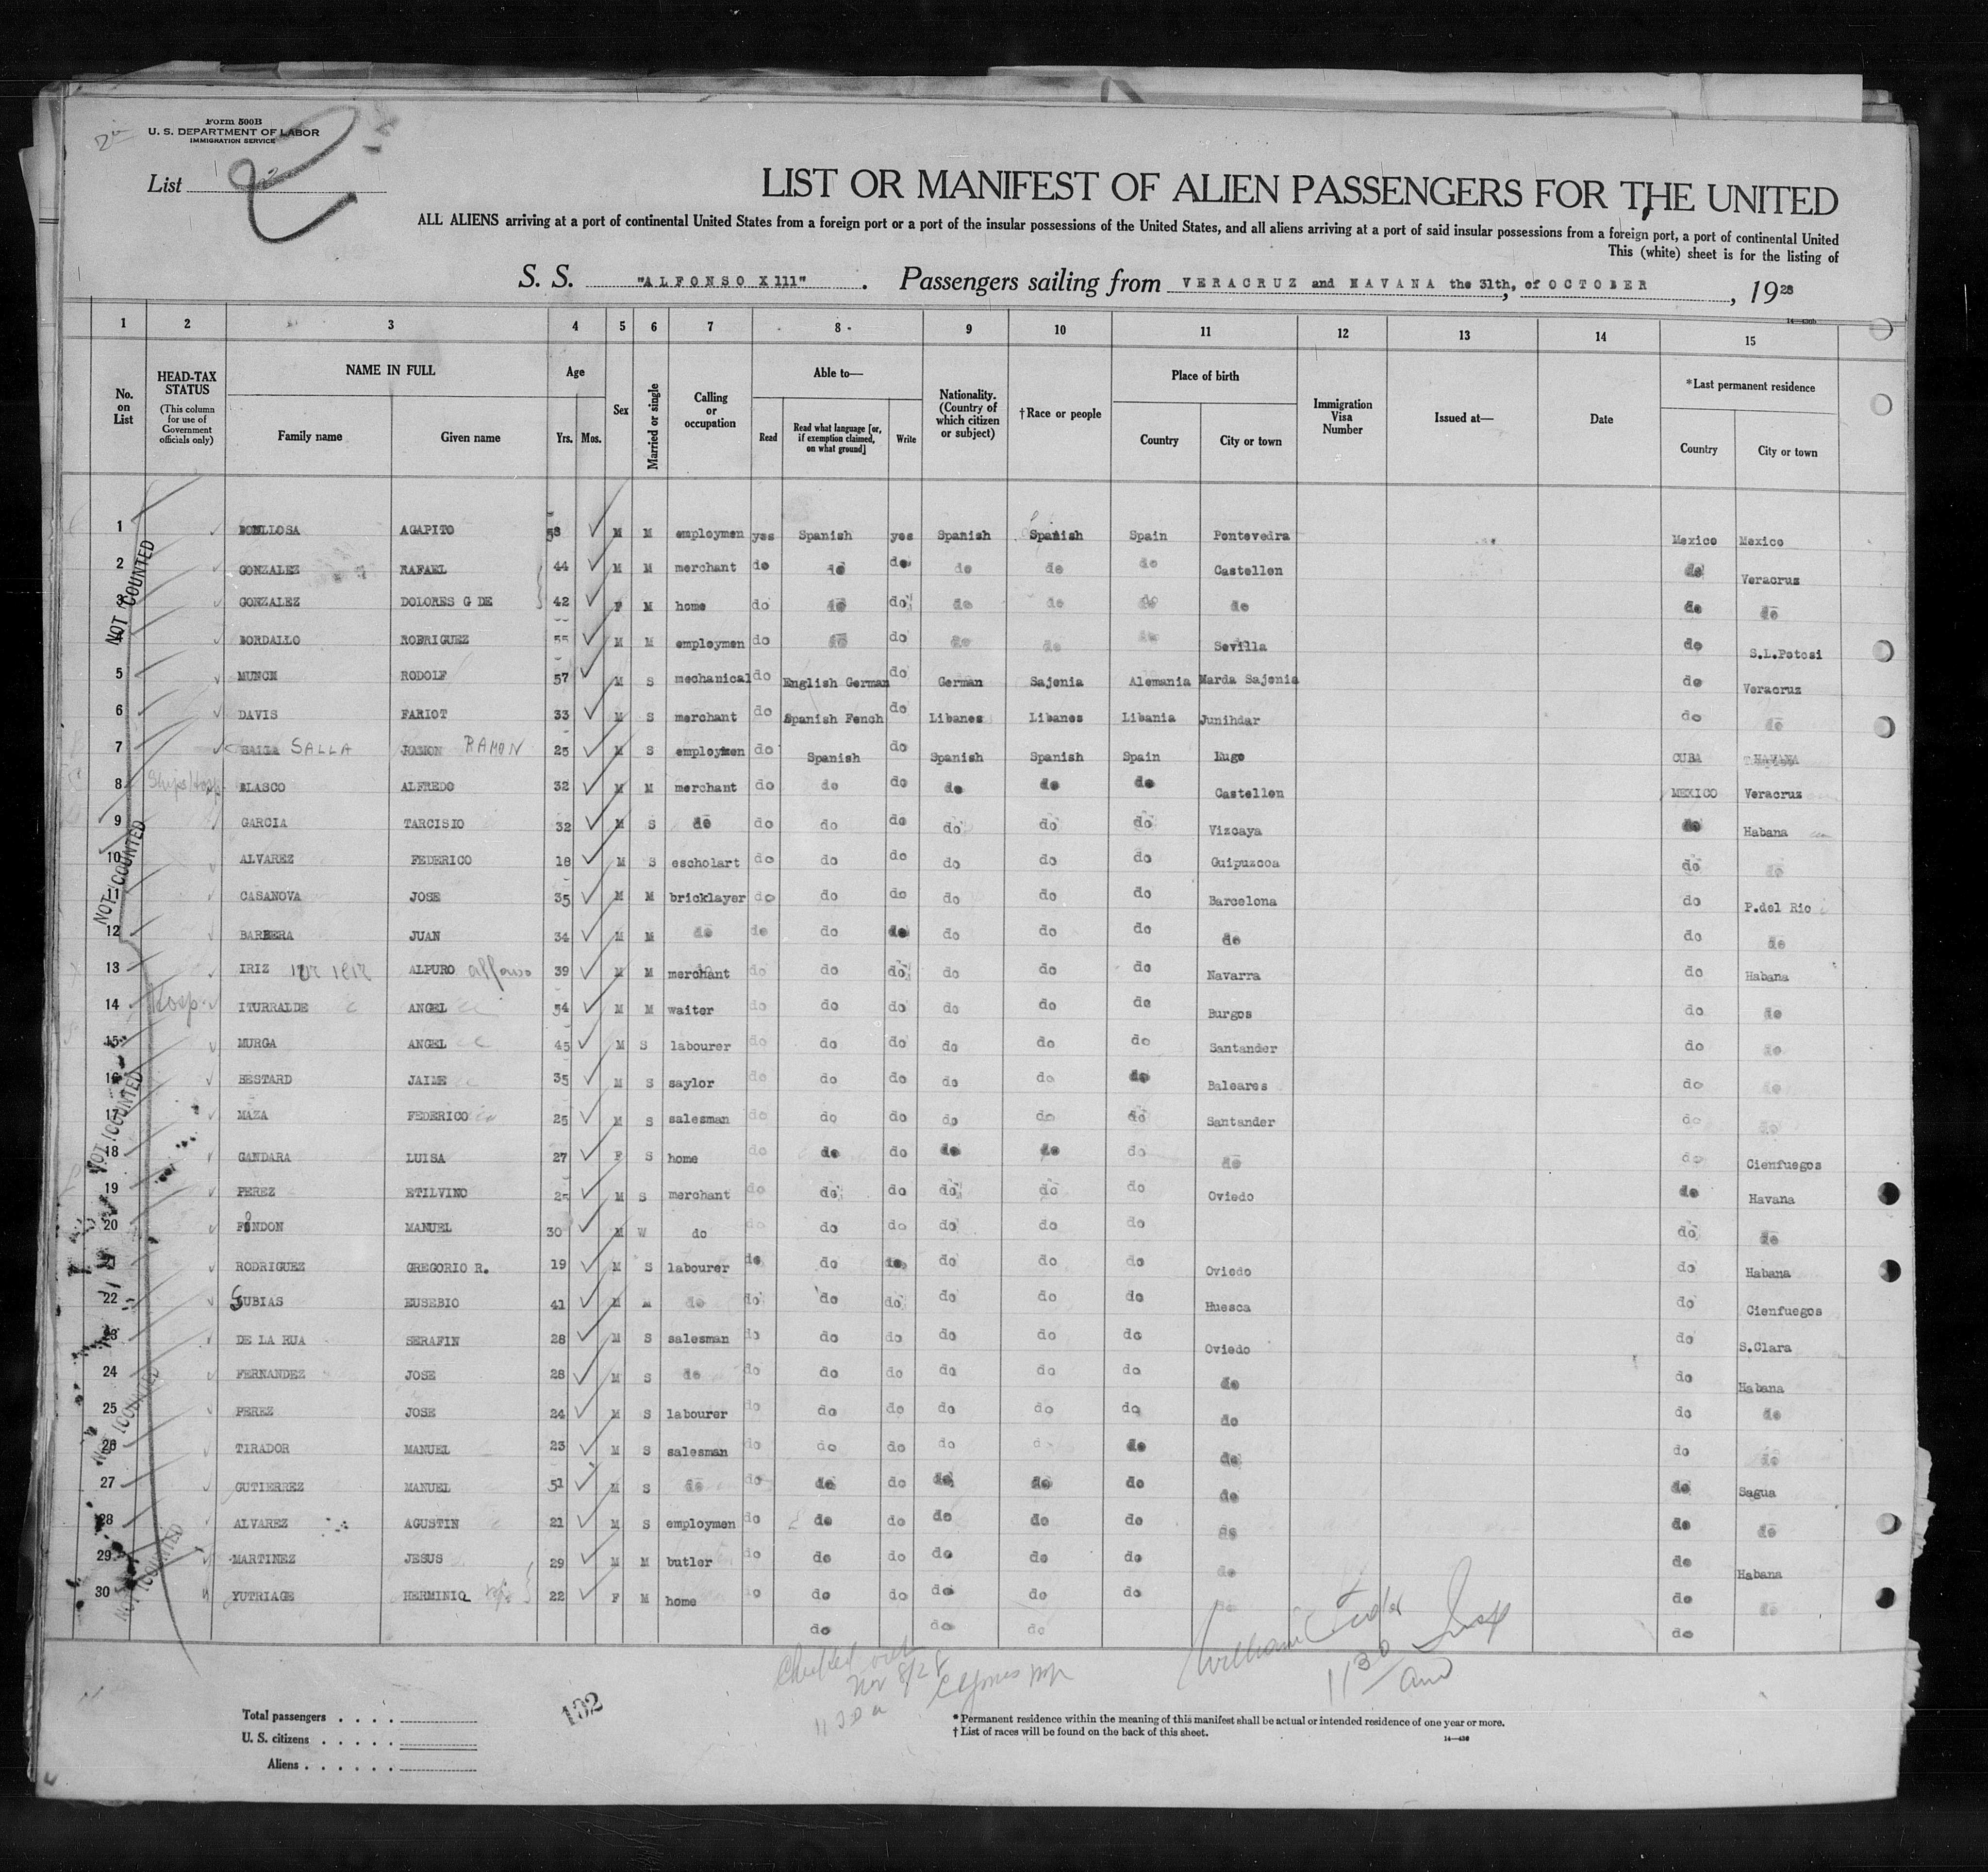 Form 500B
U. S. DEPARTMENT OF LABOR
IMMIGRATION SERVICE
List 2
LIST OR MANIFEST OF ALIEN PASSENGERS FOR THE UNITED
ALL ALIENS arriving at a port of continental United States from a foreign port or a port of the insular possessions of the United States, and all aliens arriving at a port of said insular possessions from a foreign port, a port of continental United
This (white) sheet is for the listing of
S. S. "ALFONSO X111". Passengers sailing from VERACRUZ and HAVANA the 31th, of OCTOBER, 1928
1 2 3 4 5 6 7 8 9 10 11 12 13 14 15
No. on List
HEAD-TAX STATUS
(This column for use of Government officials only)
NAME IN FULL
Family name Given name
Age
Yrs. Mos.
Sex
Married or single
Calling or occupation
Able to—
Read
Read what language [or, if exemption claimed, on what ground]
Write
Nationality. (Country of which citizen or subject)
†Race or people
Place of birth
Country City or town
Immigration Visa Number
Issued at—
Date
*Last permanent residence
Country City or town
1 AGAPITO 58 M M employmen yes Spanish yes Spanish Spanish Spain Pontevedra Mexico Mexico
2 GONZALEZ RAFAEL 44 M M merchant do do do do do do Castellen do Veracruz
3 GONZALEZ DOLORES G DE 42 F M home do do do do do do do do do
4 BORDALLO RODRIGUEZ 55 M M employmen do do do do do do Sevilla do S.L.Potosi
5 MUNCH RODOLF 57 M S mechanical do English German do German Sajenia Alemania Marda Sajenia do Veracruz
6 DAVIS FARIOT 33 M S merchant do Spanish Fench do Libanes Libanes Libania Junihdar do do
7 SALLA RAMON RAMON 25 M S employmen do Spanish do Spanish Spanish Spain Lugo CUBA HAVANA
8 Ships Hosp BLASCO ALFREDO 32 M M merchant do do do do do do Castellen MEXICO Veracruz
9 GARCIA TARCISIO 32 M S do do do do do do do Vizcaya do Habana
10 ALVAREZ FEDERICO 18 M S escholart do do do do do do Guipuzcoa do do
11 CASANOVA JOSE 35 M M bricklayer do do do do do do Barcelona do P.del Rio
12 BARBERA JUAN 34 M M do do do do do do do do do do
13 IRIZ ALPURO Alfonso 39 M M merchant do do do do do do Navarra do Habana
14 Hosp. ITURRALDE ANGEL 54 M M waiter do do do do do do Burgos do do
15 MURGA ANGEL 45 M S labourer do do do do do do Santander do do
16 BESTARD JAIME 35 M S saylor do do do do do do Baleares do do
17 MAZA FEDERICO 25 M S salesman do do do do do do Santander do do
18 GANDARA LUISA 27 F S home do do do do do do do do Cienfuegos
19 PEREZ ETILVINO 25 M S merchant do do do do do do Oviedo do Havana
20 FONDON MANUEL 30 M W do do do do do do do do do
21 RODRIGUEZ GREGORIO R. 19 M S labourer do do do do do do Oviedo do Habana
22 SUBIAS EUSEBIO 41 M M do do do do do do do Huesca do Cienfuegos
23 DE LA RUA SERAFIN 28 M S salesman do do do do do do Oviedo do S.Clara
24 FERNANDEZ JOSE 28 M S do do do do do do do do do Habana
25 PEREZ JOSE 24 M S labourer do do do do do do do do do
26 TIRADOR MANUEL 23 M S salesman do do do do do do do do do
27 GUTIERREZ MANUEL 51 M S do do do do do do do do do Sagua
28 ALVAREZ AGUSTIN 21 M S employmen do do do do do do do do do
29 MARTINEZ JESUS 29 M M butler do do do do do do do do Habana
30 YUTRIAGE HERMINIO 22 F M home do do do do do do do do do
do do do do
NOT COUNTED
NOT COUNTED
NOT COUNTED
NOT COUNTED
NOT COUNTED
Checked out
Nov 8/28
1130 a
William Insp
11 30 am
Total passengers
U. S. citizens
Aliens
102
* Permanent residence within the meaning of this manifest shall be actual or intended residence of one year or more.
† List of races will be found on the back of this sheet.
14—430